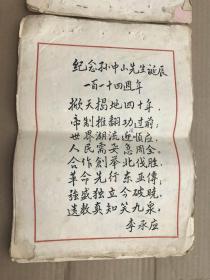 纪念孙中山先生诞辰
一百一十四週年
掀天揭地四十年,
帝制推翻功过前;
世界潮流迎顺应,
人民需要急周全。
合作创举北伐胜,
革命先行东亚传;
强盛独立今破现,
遗教真知笑九泉。
李承应